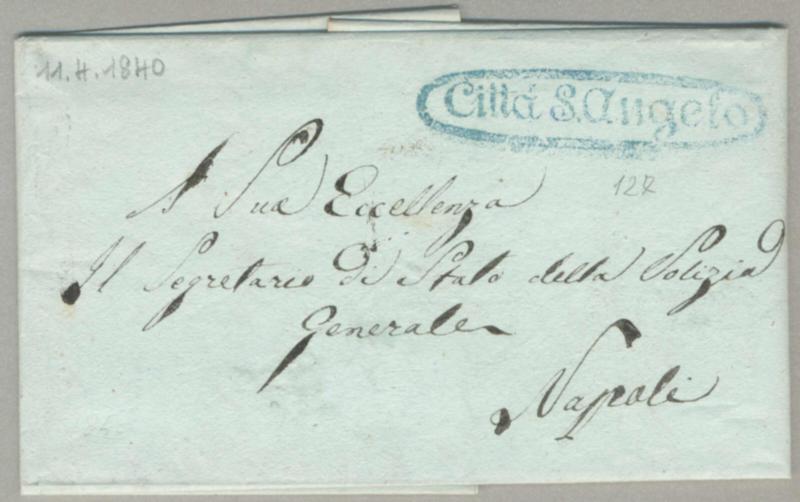 11.4.1840
Città S. Angelo
12R
A Sua Eccellenza
Il Segretario di Stato della Polizia
Generale
Napoli